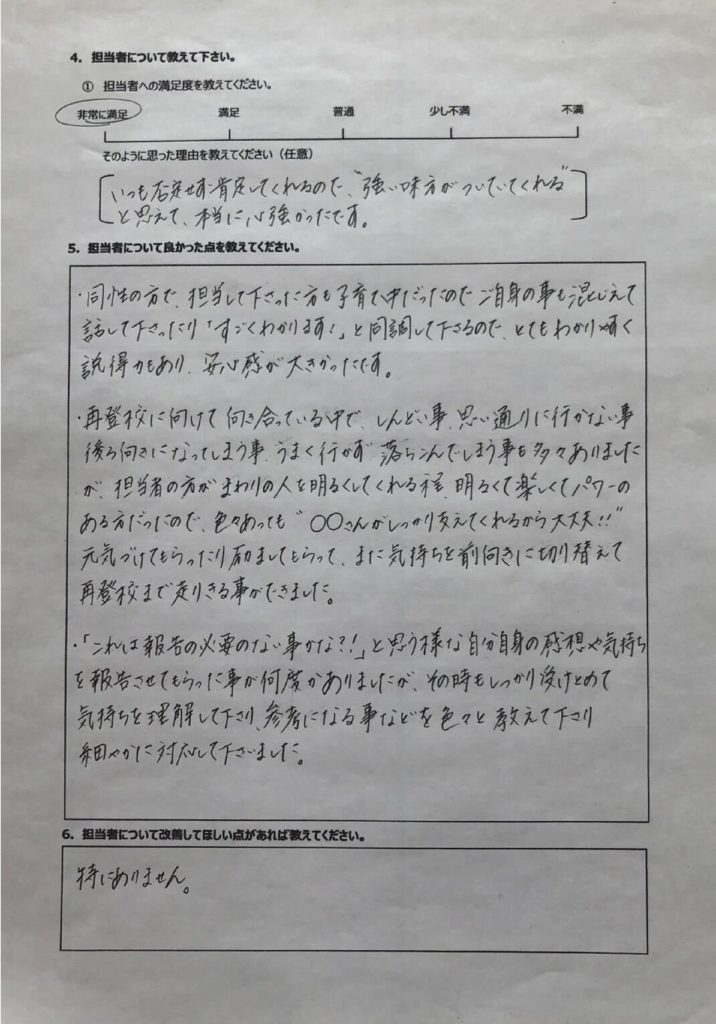 4. 担当者について教えて下さい。
① 担当者への満足度を教えてください。
非常に満足 満足 普通 少し不満 不満
そのように思った理由を教えてください（任意）
いつも否定せず肯定してくれるので、“強い味方がついていてくれる”
と思えて、本当に心強かったです。
5. 担当者について良かった点を教えてください。
・同性の方で、担当して下さった方も子育て中だったのでご自身の事も混じえて
話して下さったり「すごくわかります！」と同調して下さるので、とてもわかりやすく
説得力もあり、安心感が大きかったです。
・再登校に向けて向き合っている中で、しんどい事、思い通りに行かない事
後ろ向きになってしまう事、うまく行かず落ちこんでしまう事も多々ありました
が、担当者の方がまわりの人を明るくしてくれる程、明るくて楽しくてパワーの
ある方だったので、色々あっても“〇〇さんがしっかり支えてくれるから大丈夫!!”
元気づけてもらったり励ましてもらって、また気持ちを前向きに切り替えて
再登校まで走りきる事ができました。
・「これは報告の必要のない事かな?!」と思う様な自分自身の感想や気持ち
を報告させてもらった事が何度かありましたが、その時もしっかり受けとめて
気持ちを理解して下さり、参考になる事などを色々と教えて下さり
細やかに対応して下さいました。
6. 担当者について改善してほしい点があれば教えてください。
特にありません。